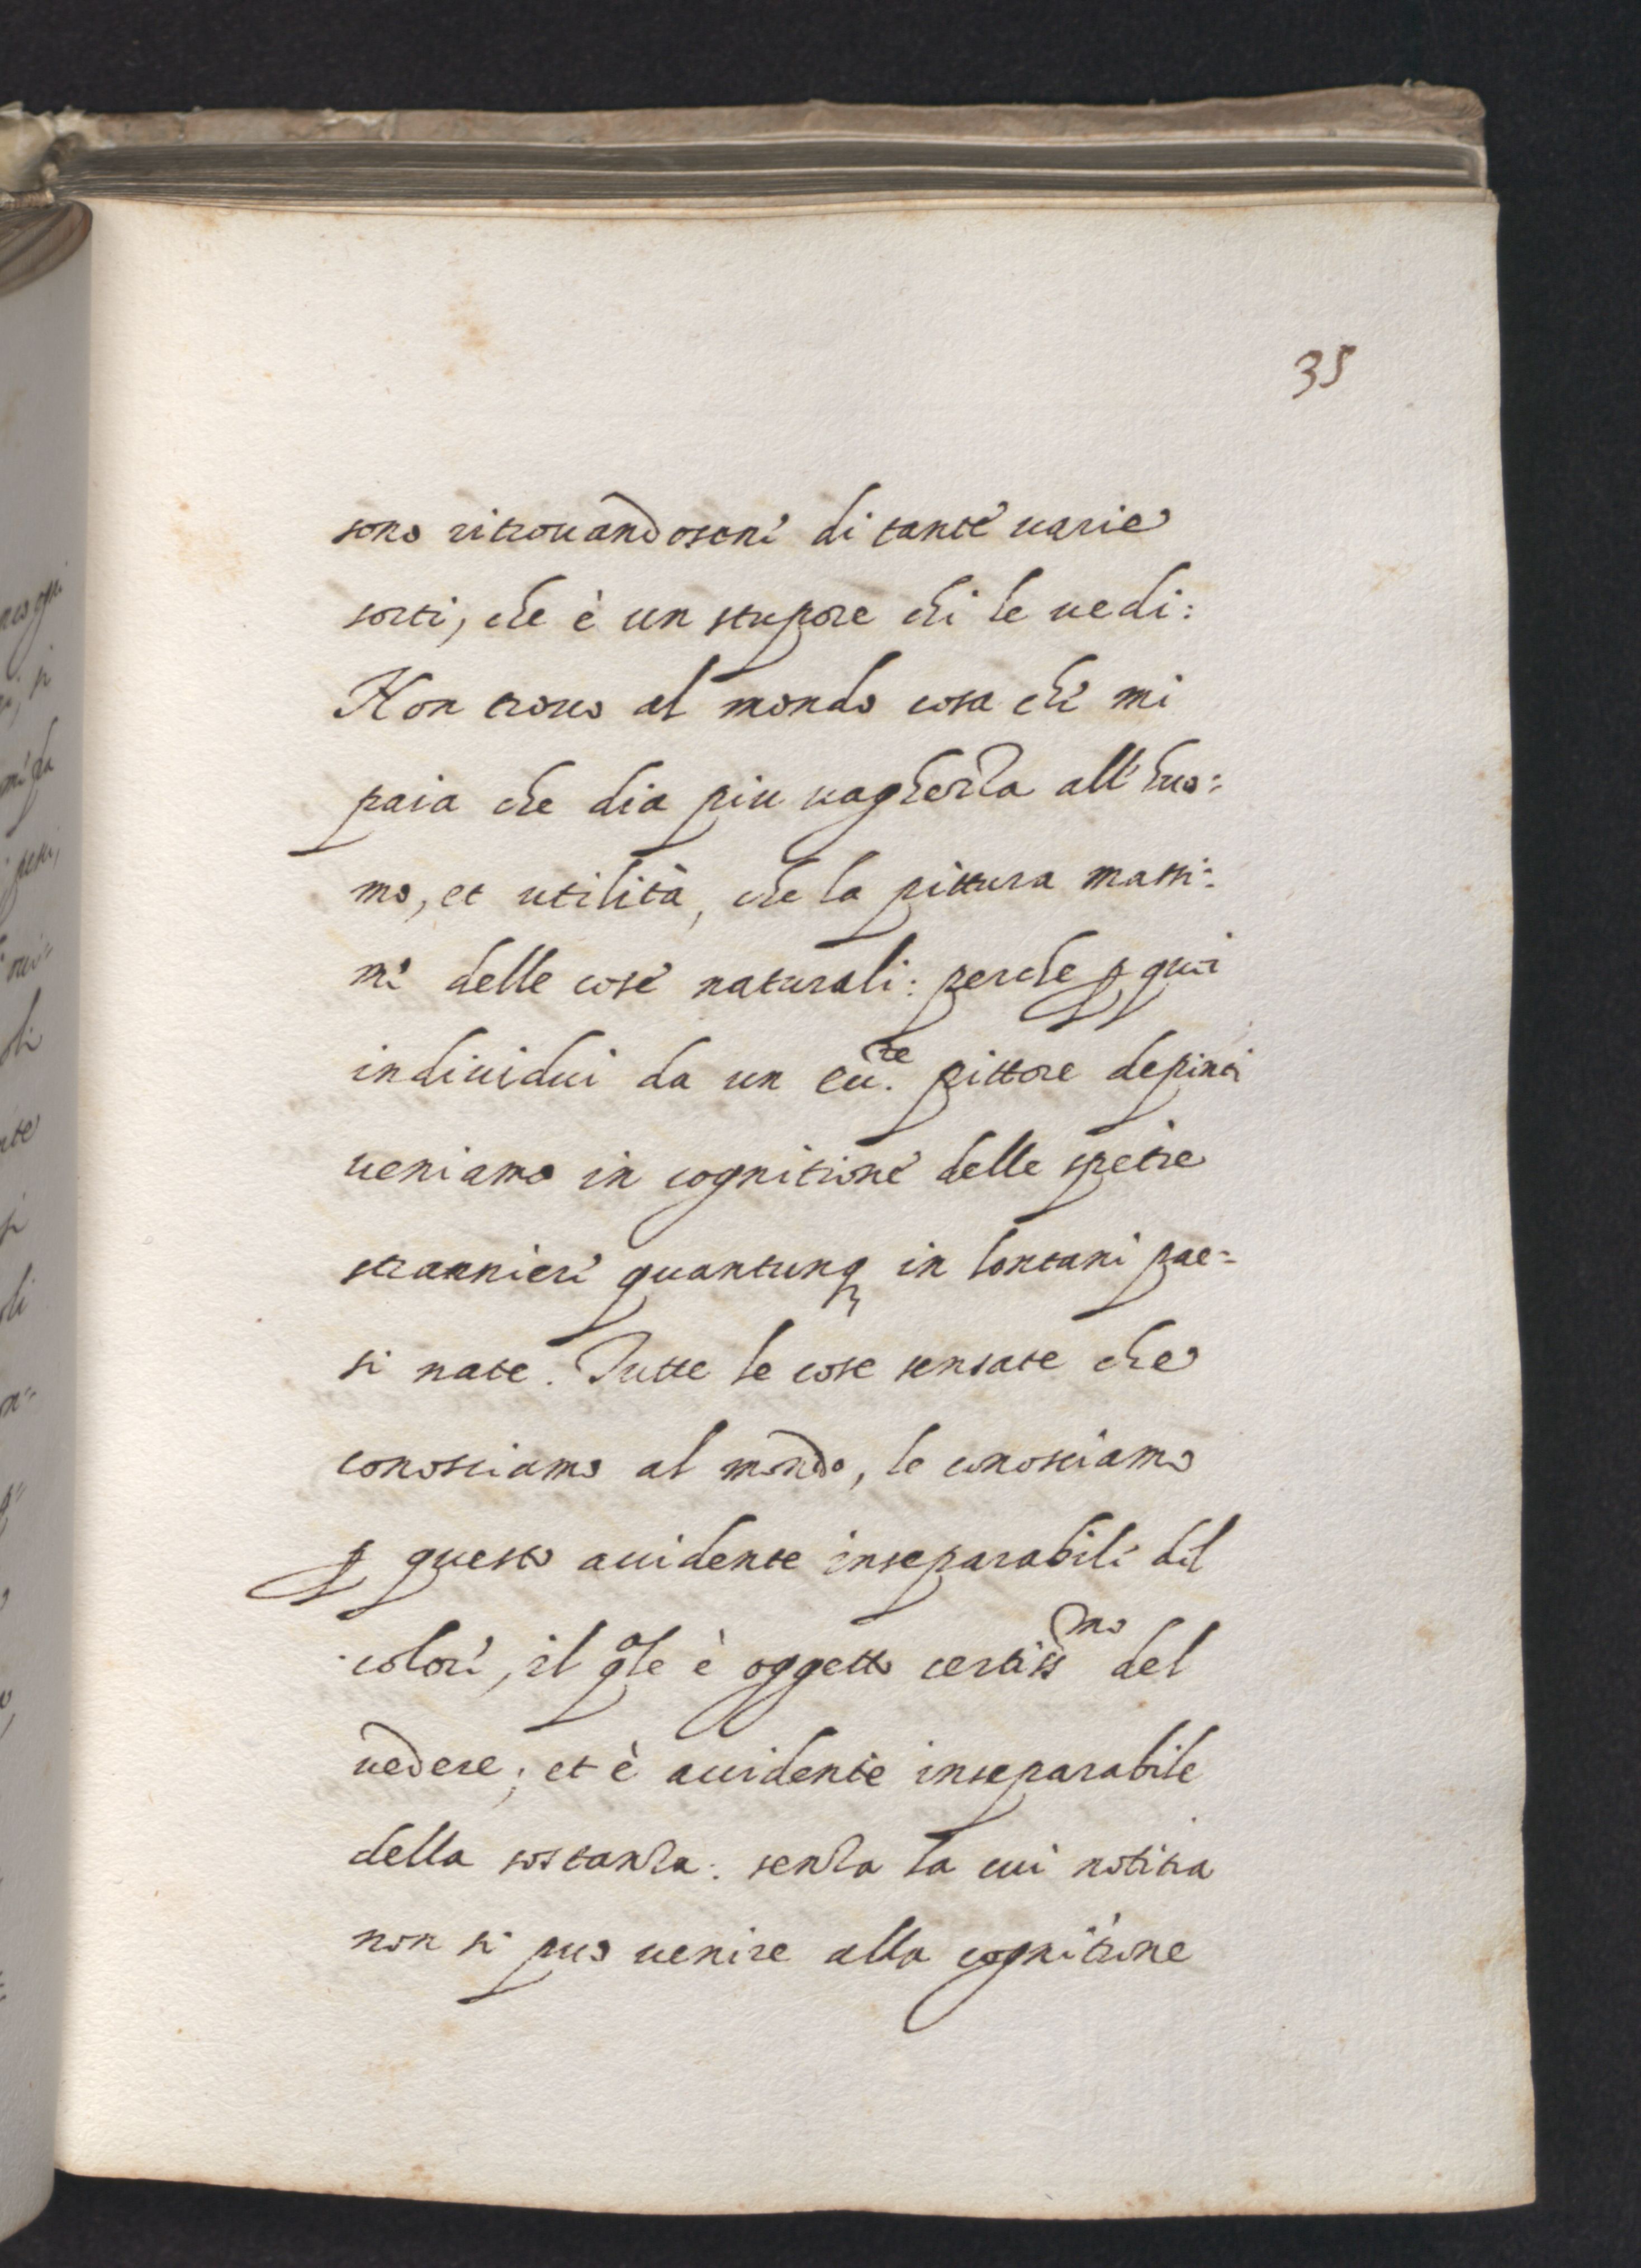 35
sono ritrouandosene di tante uarie
sorti, che è un stupore chi le uede:
Non trouo al mondo cosa che mi
paia che dia piu uaghezza all' huo:
mo, et utilità, che la pittura massi:
me delle cose naturali: perche ꝑ quei
indiuidui da un ecc.te pittore depinti
ueniamo in cognitione delle spetie
strannieri quantunq in lontani pae=
si nate. Tutte le cose sensate che
conosciamo al mondo, le conosciamo
ꝑ questo accidente inseparabile del
colore, il qle è oggetto certissmo del
uedere; et è accidente inseparabile
della sostanza: senza la cui notitia
non si puo uenire alla cognitione